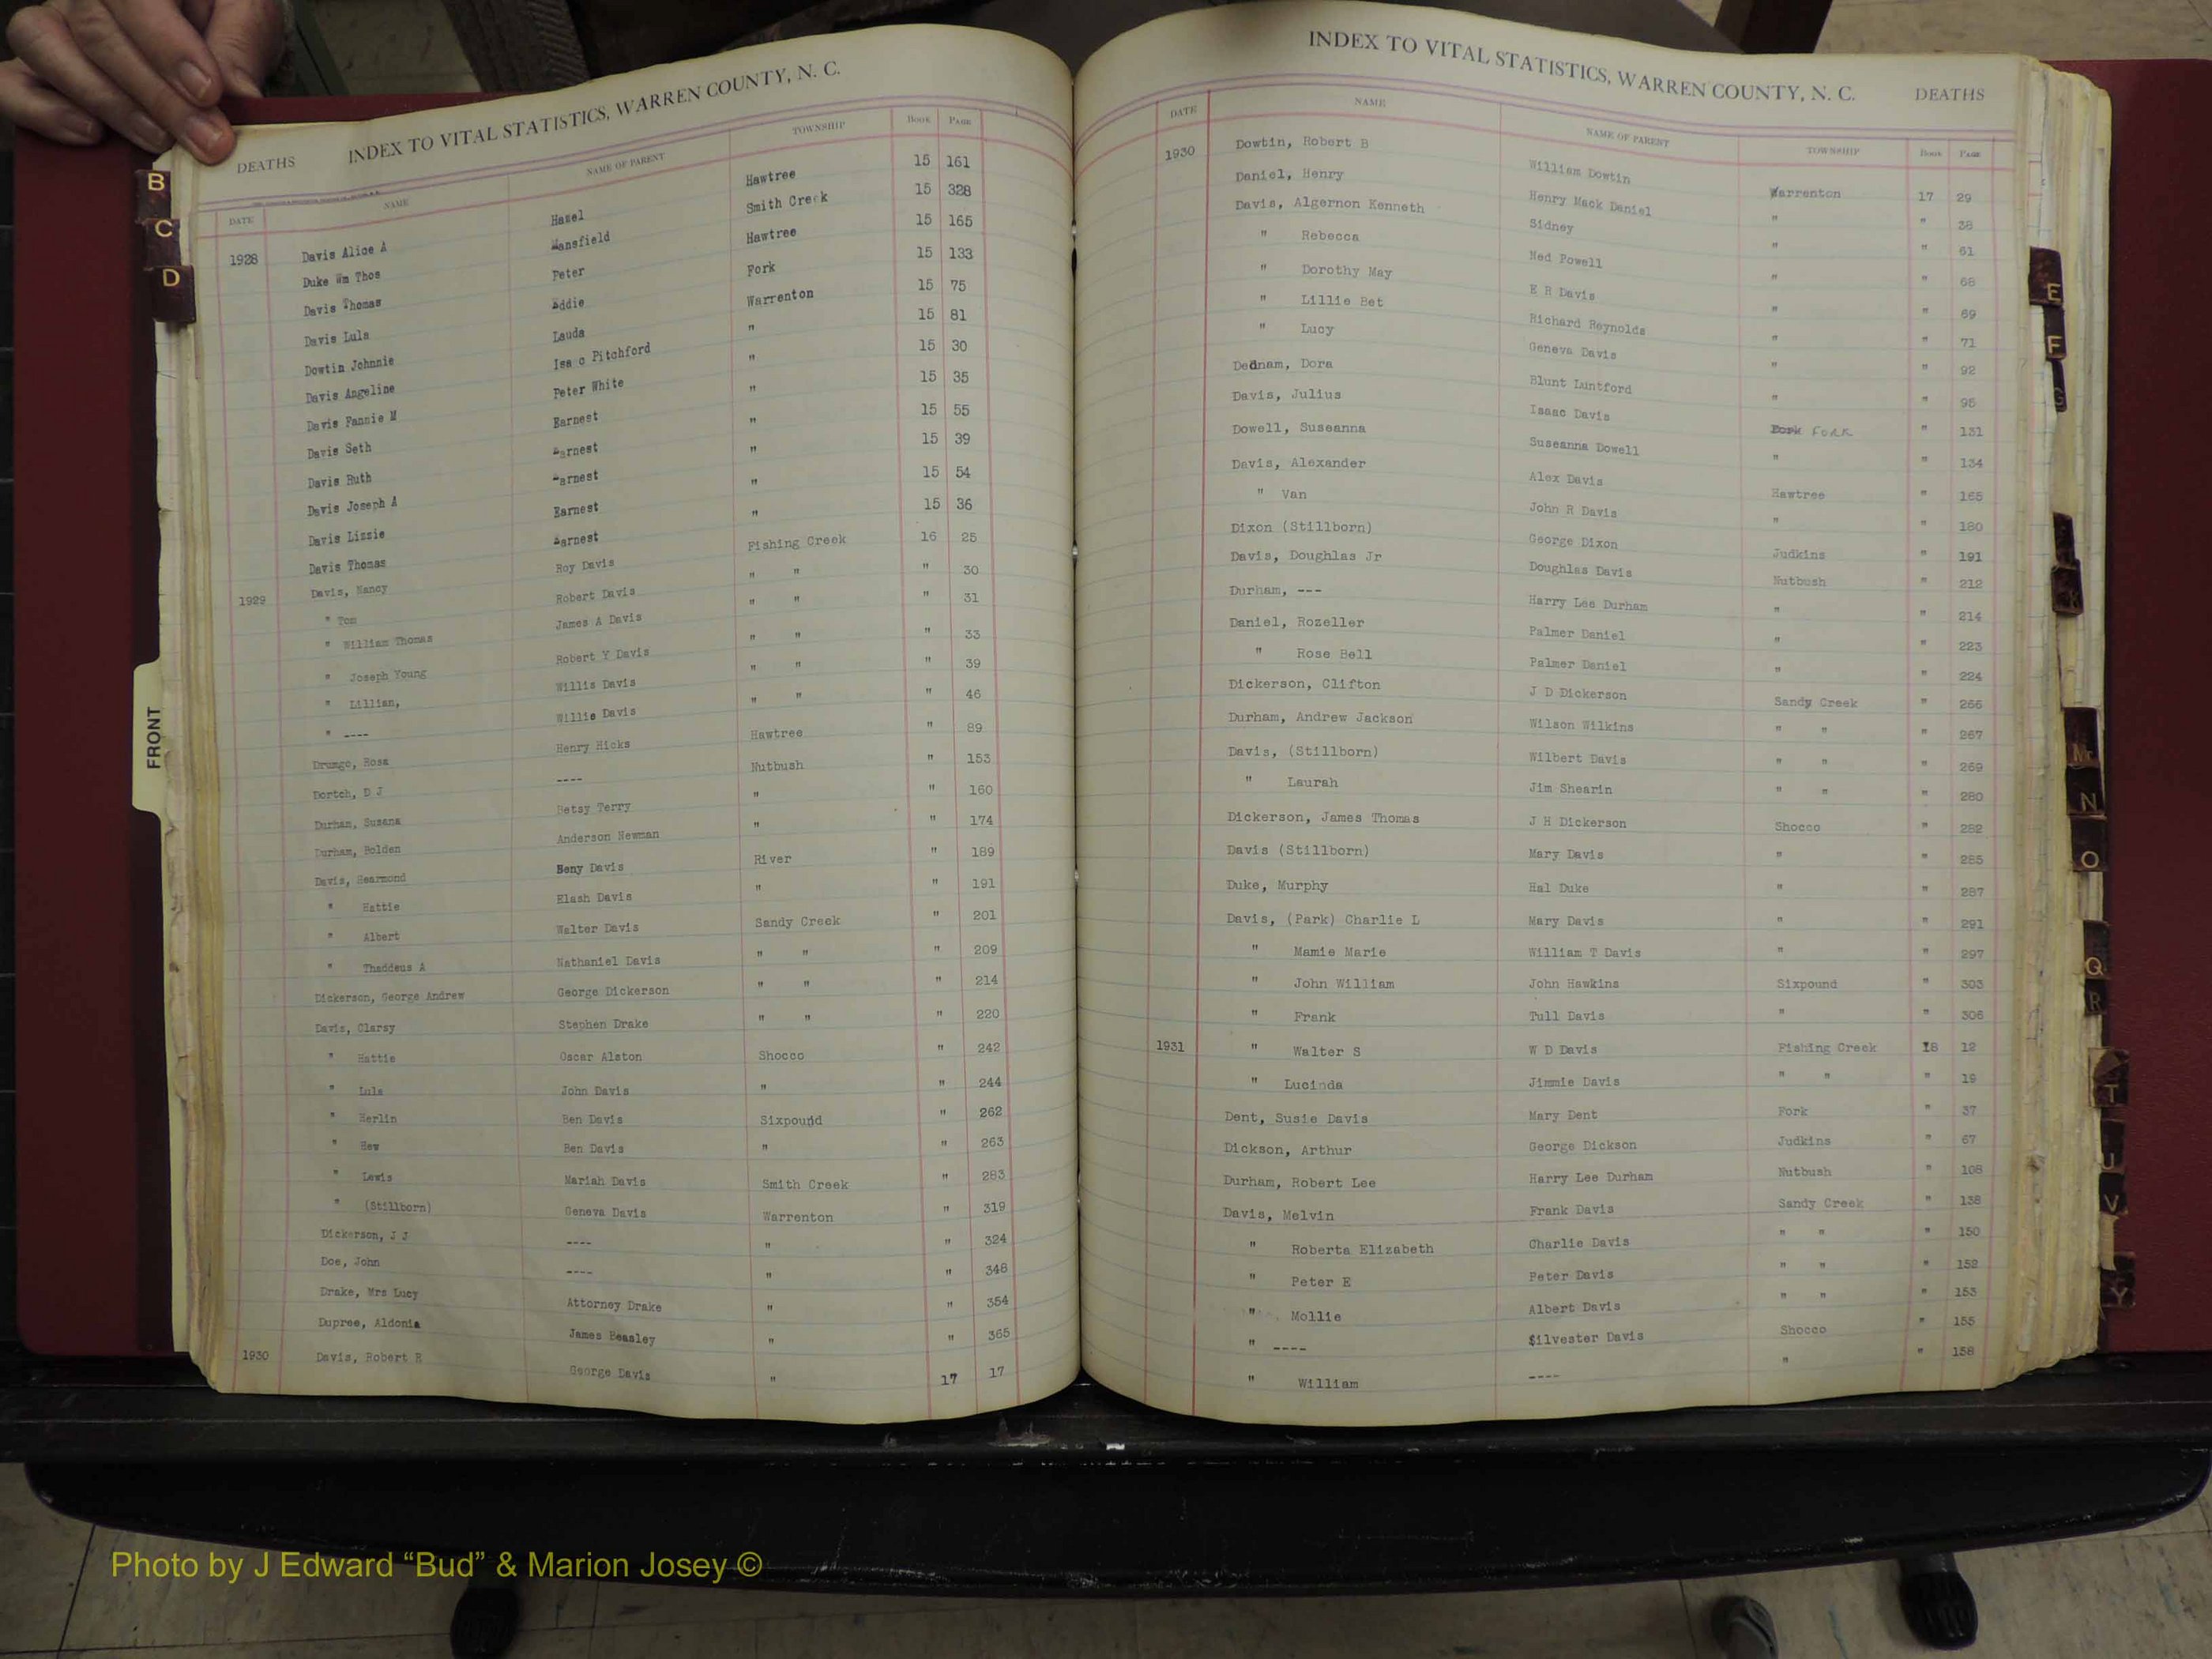 INDEX TO VITAL STATISTICS, WARREN COUNTY, N. C.
DEATHS
DATE NAME NAME OF PARENT TOWNSHIP BOOK PAGE
1928 Davis Alice A Hazel Hawtree 15 161
Duke Wm Thos Mansfield Smith Creek 15 328
Davis Thomas Peter Hawtree 15 165
Davis Lula Addie Fork 15 133
Dowtin Johnnie Lauda Warrenton 15 75
Davis Angeline Isa c Pitchford " 15 81
Davis Fannie M Peter White " 15 30
Davis Seth Earnest " 15 35
Davis Ruth Earnest " 15 55
Davis Joseph A Earnest " 15 39
Davis Lizzie Earnest " 15 54
Davis Thomas Earnest " 15 36
1929 Davis, Nancy Roy Davis Fishing Creek 16 25
" Tom Robert Davis " " " 30
" William Thomas James A Davis " " " 31
" Joseph Young Robert Y Davis " " " 33
" Lillian, Willis Davis " " " 39
" ---- Willie Davis " " " 46
Drumgo, Rosa Henry Hicks Hawtree " 89
Bortch, D J ---- Nutbush " 153
Durham, Susana Betsy Terry " " 160
Durham, Bolden Anderson Newman " " 174
Davis, Hearmond Beny Davis River " 189
" Hattie Elash Davis " " 191
" Albert Walter Davis Sandy Creek " 201
" Thaddeus A Nathaniel Davis " " " 209
Dickerson, George Andrew George Dickerson " " " 214
Davis, Clarsy Stephen Drake " " " 220
" Hattie Oscar Alston Shocco " 242
" Lula John Davis " " 244
" Herlin Ben Davis Sixpound " 262
" Hew Ben Davis " " 263
" Lewis Mariah Davis Smith Creek " 283
" (Stillborn) Geneva Davis Warrenton " 319
Dickerson, J J ---- " " 324
Doe, John ---- " " 348
Drake, Mrs Lucy Attorney Drake " " 354
Dupree, Aldonia James Beasley " " 365
1930 Davis, Robert R George Davis " 17 17
INDEX TO VITAL STATISTICS, WARREN COUNTY, N. C. DEATHS
DATE NAME NAME OF PARENT TOWNSHIP BOOK PAGE
1930 Dowtin, Robert B William Dowtin Warrenton 17 29
Daniel, Henry Henry Mack Daniel " " 38
Davis, Algernon Kenneth Sidney " " 61
" Rebecca Ned Powell " " 68
" Dorothy May E R Davis " " 69
" Lillie Bet Richard Reynolds " " 71
" Lucy Geneva Davis " " 92
Dednam, Dora Blunt Luntford " " 95
Davis, Julius Isaac Davis Fork " 131
Dowell, Suseanna Suseanna Dowell " " 134
Davis, Alexander Alex Davis Hawtree " 165
" Van John R Davis " " 180
Dixon (Stillborn) George Dixon Judkins " 191
Davis, Doughlas Jr Doughlas Davis Nutbush " 212
Durham, --- Harry Lee Durham " " 214
Daniel, Rozeller Palmer Daniel " " 223
" Rose Bell Palmer Daniel " " 224
Dickerson, Clifton J D Dickerson Sandy Creek " 266
Durham, Andrew Jackson Wilson Wilkins " " " 267
Davis, (Stillborn) Wilbert Davis " " " 269
" Laurah Jim Shearin " " " 280
Dickerson, James Thomas J H Dickerson Shocco " 282
Davis (Stillborn) Mary Davis " " 285
Duke, Murphy Hal Duke " " 287
Davis, (Park) Charlie L Mary Davis " " 291
" Mamie Marie William T Davis " " 297
" John William John Hawkins Sixpound " 303
" Frank Tull Davis " " 306
1931 " Walter S W D Davis Fishing Creek 18 12
" Lucinda Jimmie Davis " " " 19
Dent, Susie Davis Mary Dent Fork " 37
Dickson, Arthur George Dickson Judkins " 67
Durham, Robert Lee Harry Lee Durham Nutbush " 108
Davis, Melvin Frank Davis Sandy Creek " 138
" Roberta Elizabeth Charlie Davis " " " 150
" Peter E Peter Davis " " " 152
" Mollie Albert Davis " " " 153
" ---- Silvester Davis Shocco " 155
" William ---- " " 158
B
C
D
FRONT
E
F
G
K
Mc
N
O
Q
R
T
U
V
Y
Photo by J Edward “Bud” & Marion Josey ©